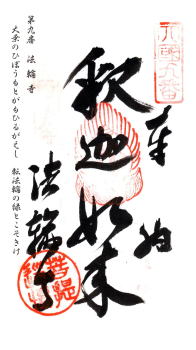 四國九番
奉納
釋迦如来
法輪寺
第九番　法輪寺
大乗のひぼうもとがもひるがえし
転法輪の縁とこそきけ